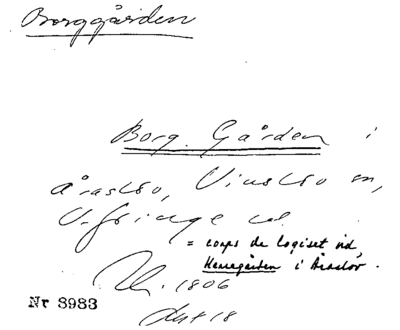 Borggården
Borg Gården i
Åraslöv, Vinslöv sn,
V. Göinge hd.
= corps de logiset vid
Herregården i Åraslöv.
Uh. 1806
Nr 8983
Akt 18